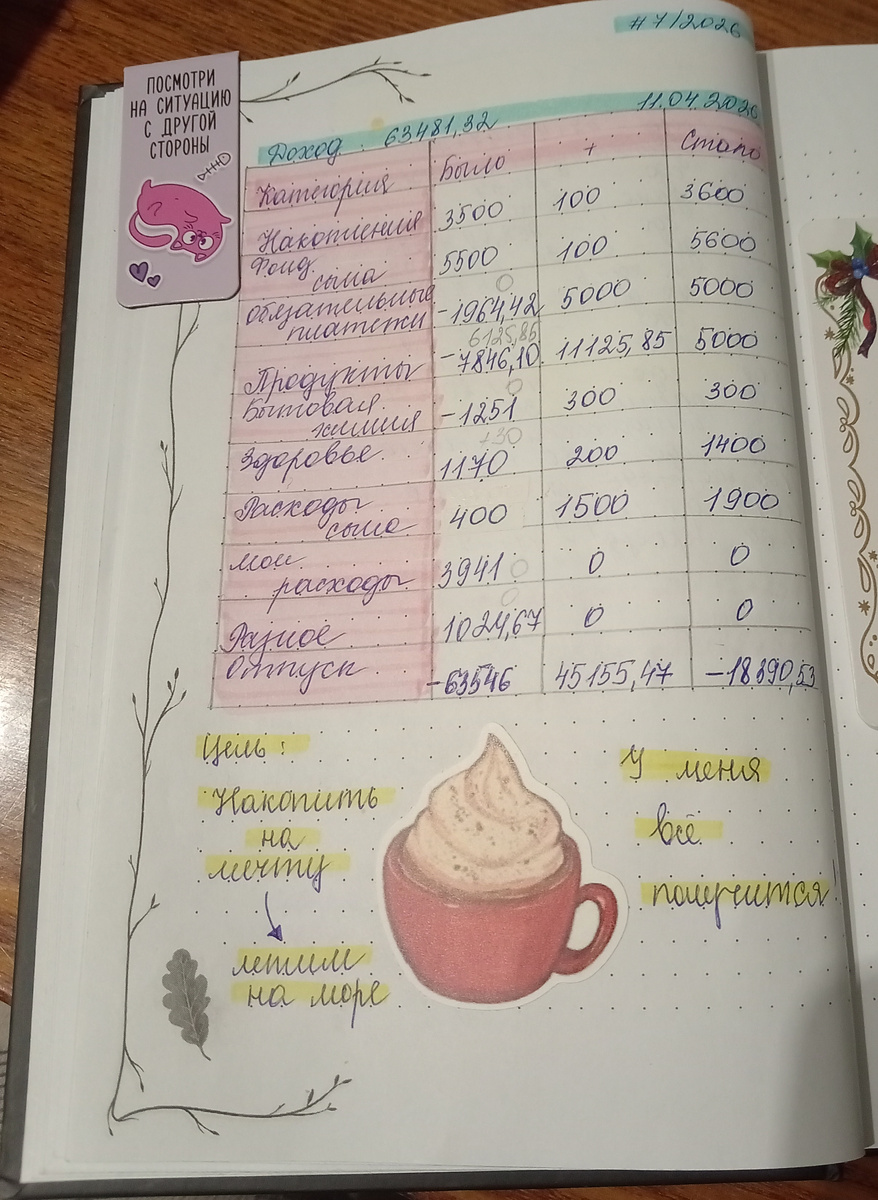 # 7/2026
ПОСМОТРИ
НА СИТУАЦИЮ
С ДРУГОЙ
СТОРОНЫ
Доход 63481,32 11.04.2026
Категория Было + Стало
Накопления 3500 100 3600
Фонд
сына 5500 100 5600
0
Обязательные
платежи -1964,42 5000 5000
6125,85
Продукты -7846,10 11125,85 5000
0
Бытовая
химия -1251 300 300
+30
Здоровье 1170 200 1400
Расходы
сына 400 1500 1900
Мои
расходы 3941 0 0 0
0
Разное 1024,67 0 0
Отпуск -63546 45155,47 -18390,53
Цель:
Накопить
на
мечту
летим
на море
У меня
всё
получится!